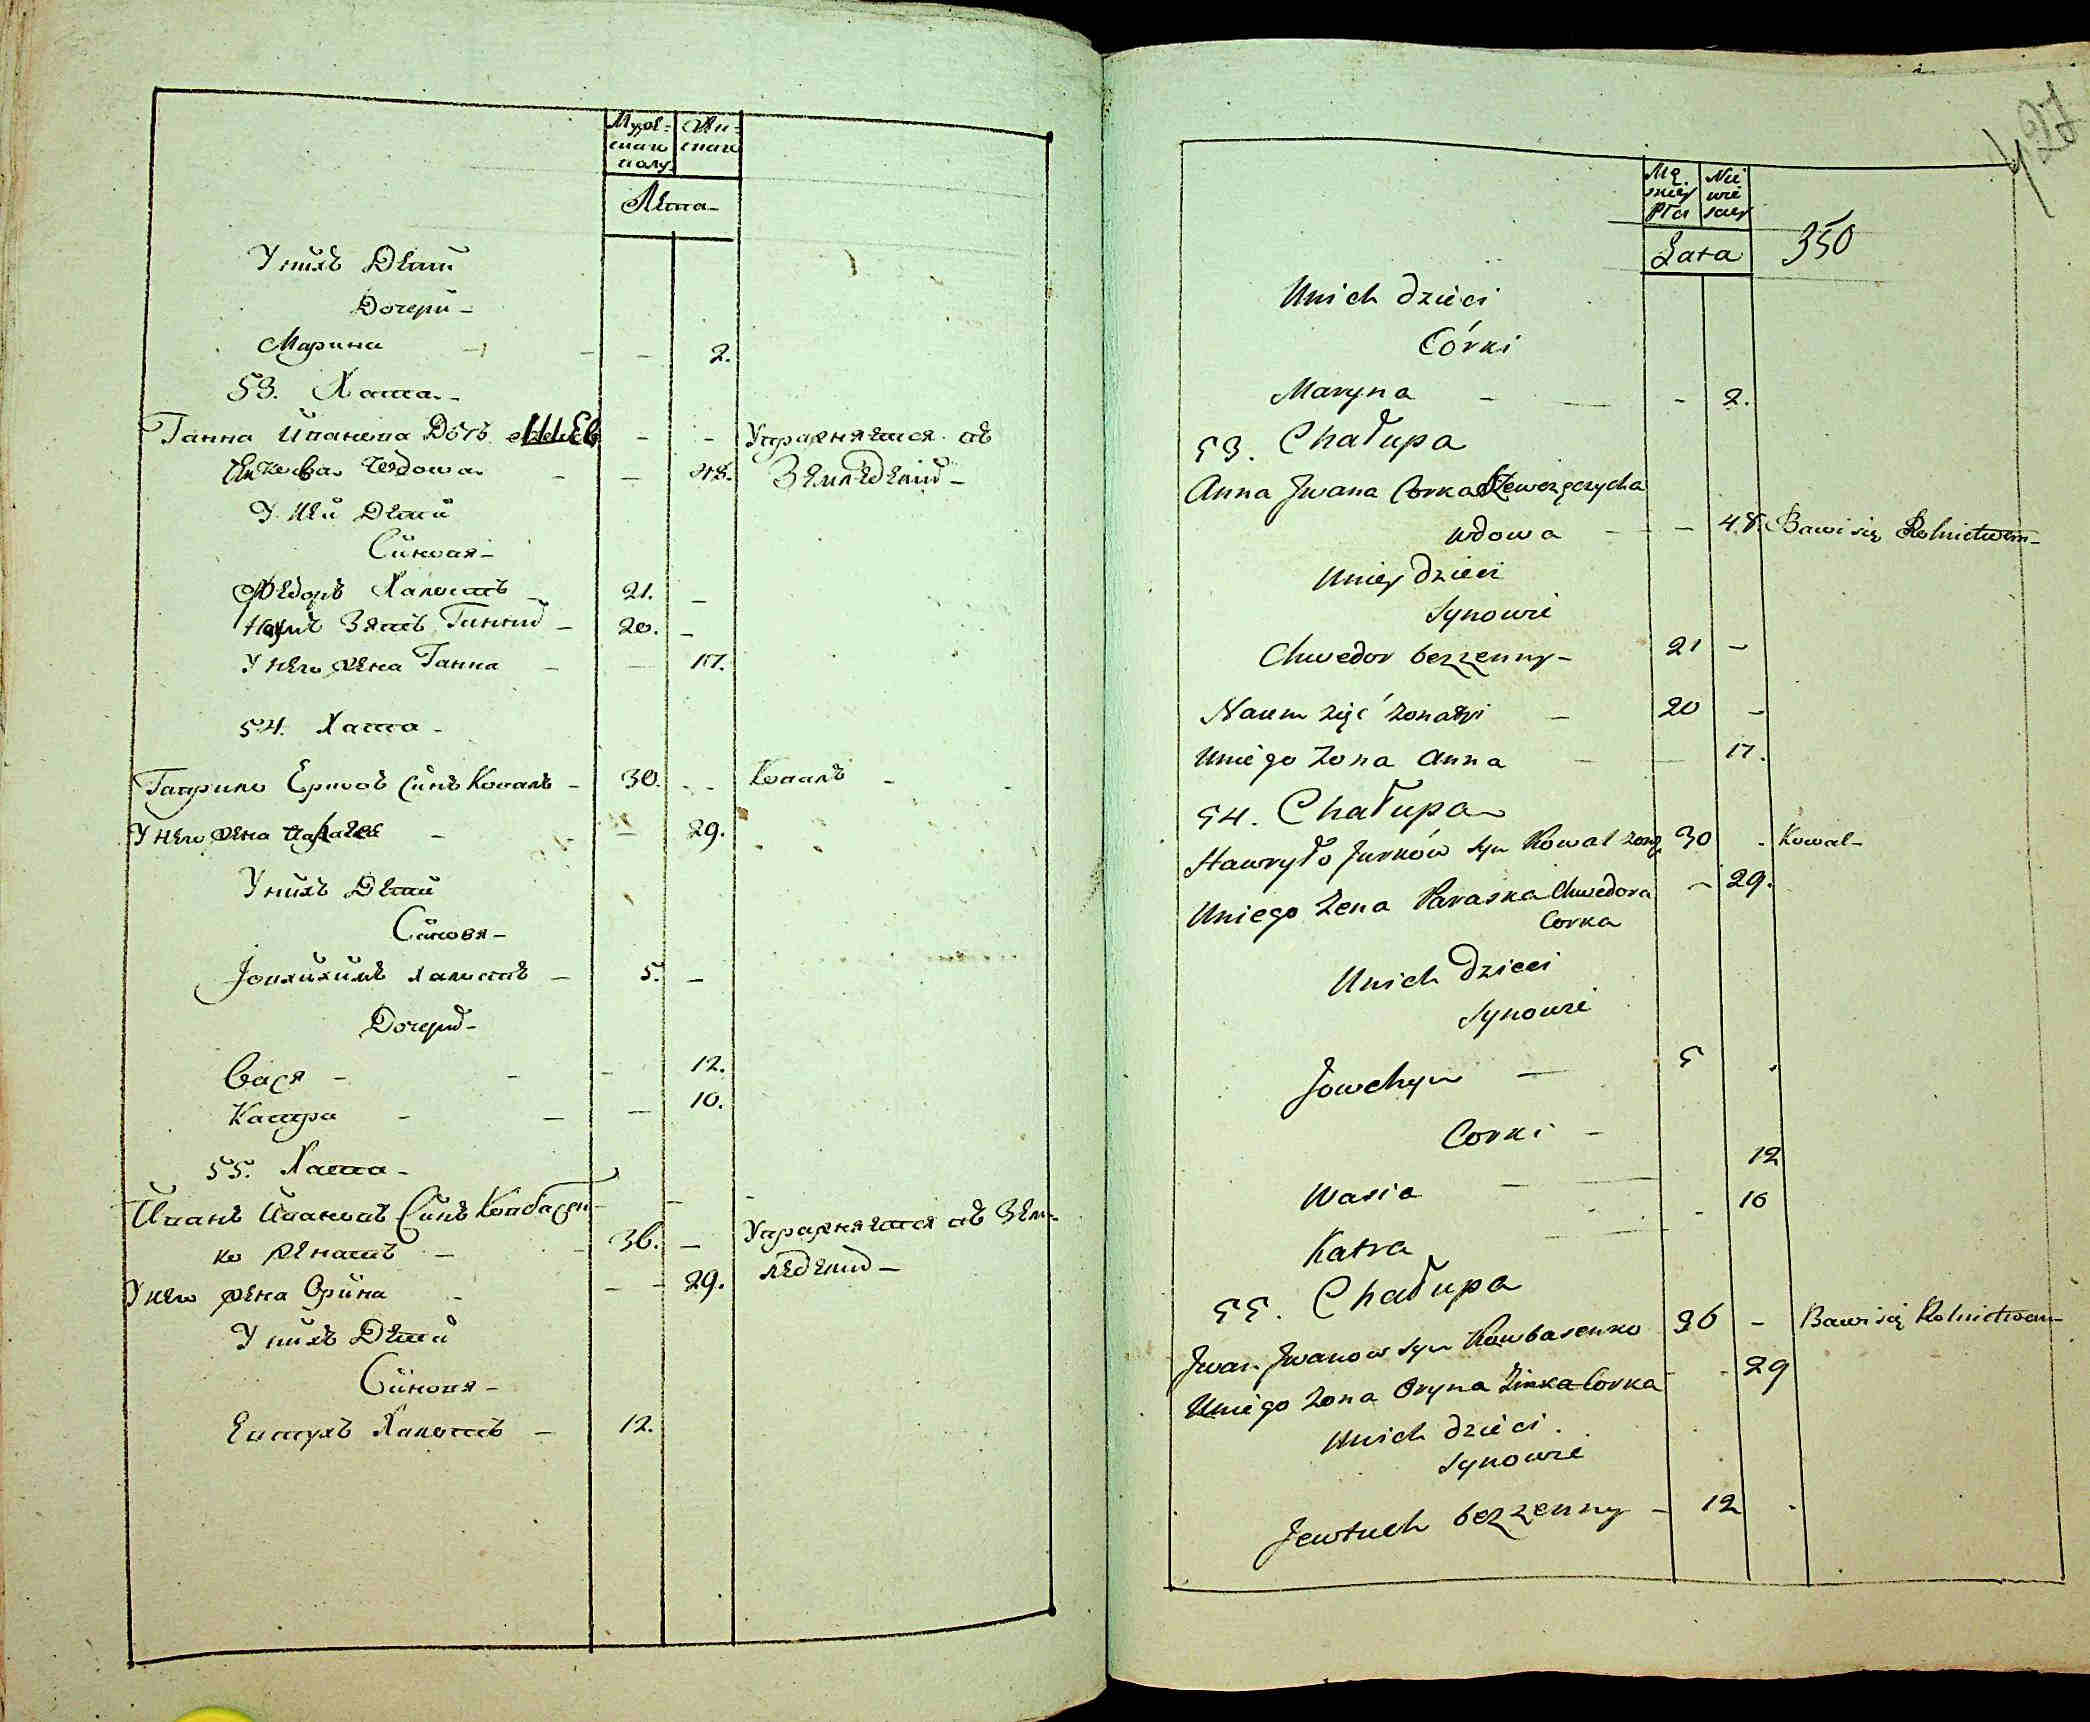 Муже- Жен-
скаго скаго
полу
Лета
У нихъ Дети
Дочери
Марина - - - 2.
53. Хата
Ганна Иванова Дочь - - Упражняется въ
вдова - - 48. Земледелии
У ней Дети
Синовя
Федоръ Халостъ - 21. -
Наумъ Зять Ганнии - 20. -
У него жена Ганна - - 17.
54. Хата
Гаврило Син Коваль - 30. - Коваль -
У него жена - - 29.
У нихъ Дети
Синовя
Іовхимъ халостъ - 5. -
Дочери
Вася - - - 12.
Катра - - - 10.
55. Хата
Иванъ Ивановъ Синъ Ковбасен- - -
ко женатъ - 36. - Упражняется въ Зем-
леделии
У него жена Орина - - - 29.
У нихъ Дети
Синовя
Евтухъ Халостъ - 12.
427
Mę Nie
skiey wie
Płci sciey
Lata 350
Unich dzieci
Córki
Maryna - - - 2.
53. Chałupa
Anna Jwana Corka
wdowa - - 48. Bawi się Rolnictwem
Uniey dzieci
Synowie
Chwedor bezzenny - 21 -
Naum zięć zonaty - 20 -
Uniego Zona Anna - - 17.
54. Chałupa
Hawryło Jurków Syn Kowal zona 30 . Kowal
Uniego Zona Paraska Chwedora - 29.
Corka
Unich Dzieci
Synowie
Jowchym - 5 .
Corki - 12
Wasia - - 10
Katra
55. Chałupa
Jwan Jwanow Syn Kowbasenko 36 - Bawi się Rolnictwem
Uniego Zona Oryna Corka - - 29
Unich dzieci
Synowie
Jewtuch bezzenny - 12 .